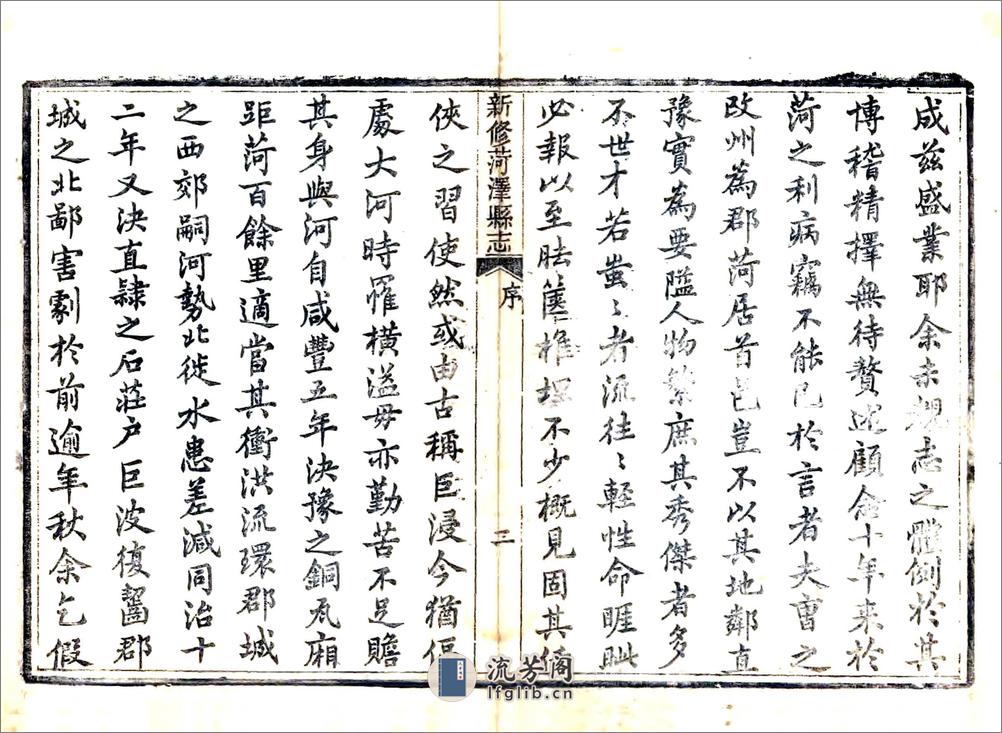 成茲盛業耶余未覩志之體例於其
博稽精擇無待贅述顧念十年來於
菏之利病竊不能已於言者夫曹之
改州為郡菏居首邑豈不以其地鄰直
豫實為要隘人物繁庶其秀傑者多
不世才若蚩〻者流往〻輕性命睚眦
必報以至胠篋椎埋不少概見固其
新修菏澤縣志
序
三
俠之習使然或由古稱巨浸今猶偪
處大河時罹橫溢毋亦勤苦不足贍
其身與河自咸豐五年決豫之銅瓦廂
距菏百餘里適當其衝洪流環郡城
之西郊嗣河勢北徙水患差減同治十
二年又決直隸之石莊户巨波復齧郡
城之北鄙害劇於前逾年秋余乞假
流芳阁
lfglib.cn